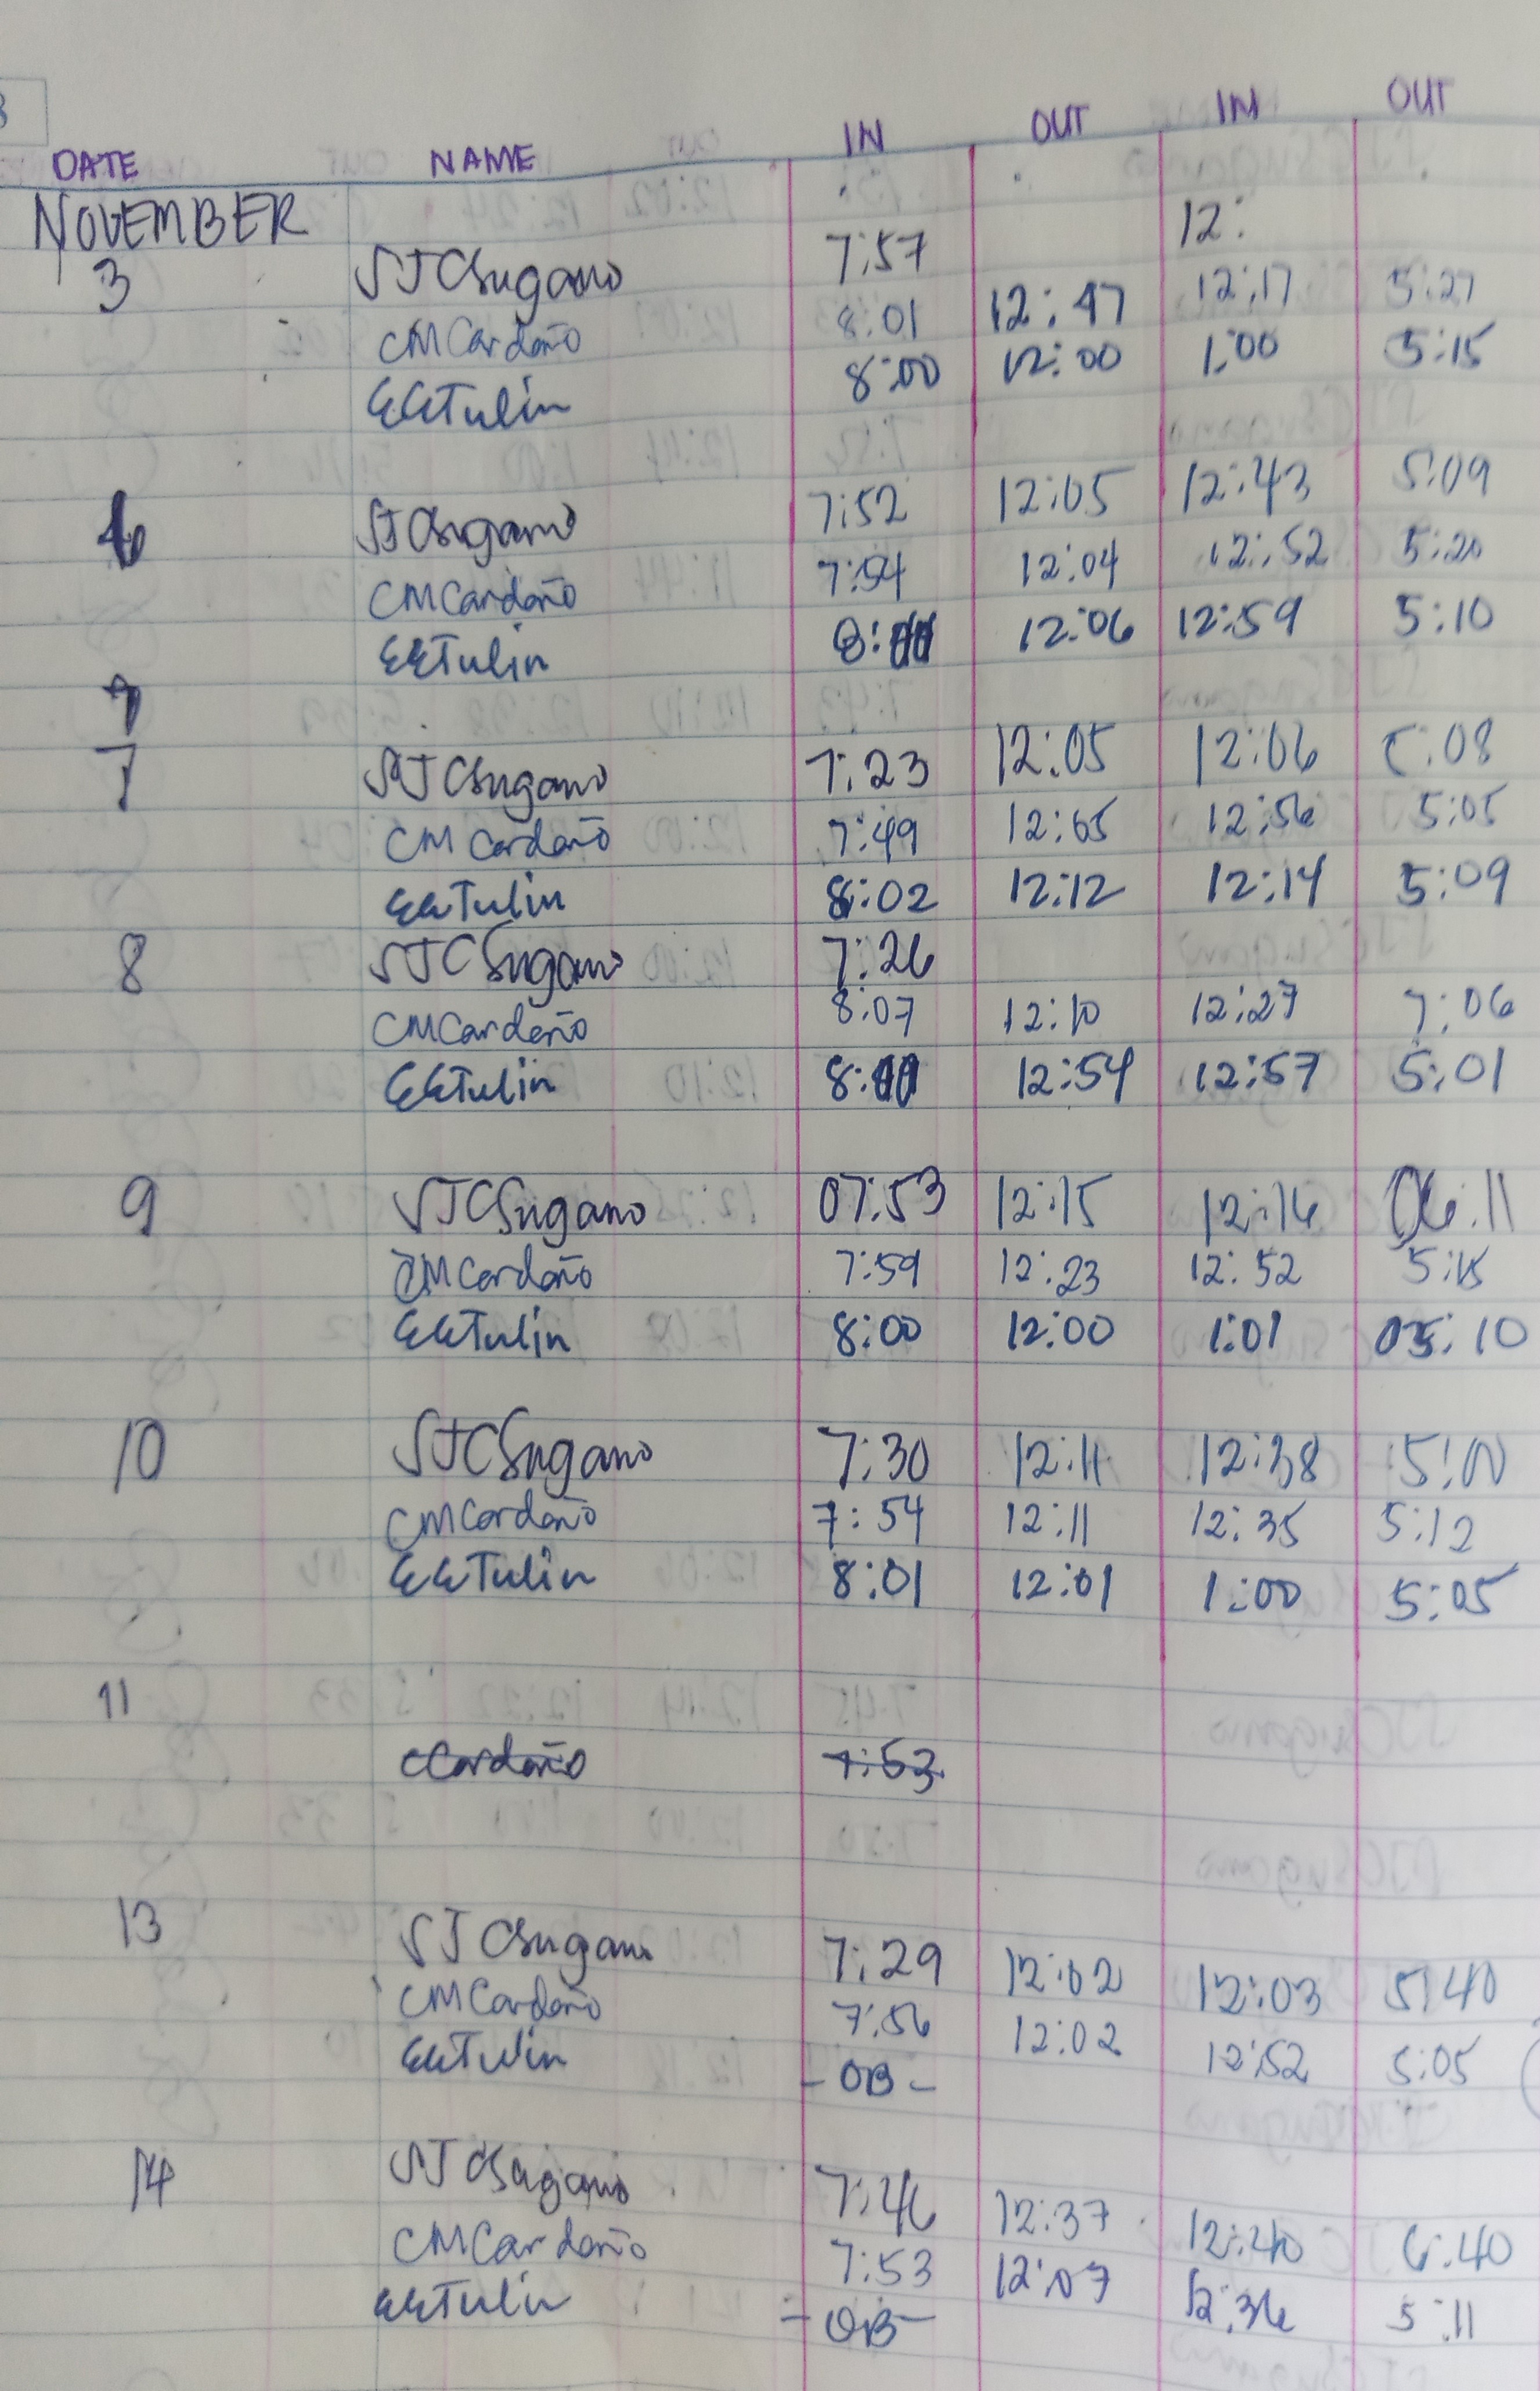 DATE NAME IN OUT IN OUT
NOVEMBER
3 SJCSugano 7:57 12:
CMCardaño 8:01 12:47 12:17 5:27
EETulin 8:00 12:00 1:00 5:15
6 SJCSugano 7:52 12:05 12:43 5:09
CMCardaño 7:54 12:04 12:52 5:20
EETulin 12:06 12:59 5:10
7
7 SJCSugano 7:23 12:05 12:06 5:08
CMCardaño 7:49 12:05 12:56 5:05
EETulin 8:02 12:12 12:14 5:09
8 SJCSugano 7:26
CMCardaño 8:07 12:10 12:27 7:06
EETulin 12:54 12:57 5:01
9 SJCSugano 07:53 12:15 12:16 06:11
CMCardaño 7:59 12:23 12:52 5:15
EETulin 8:00 12:00 1:01 05:10
10 SJCSugano 7:30 12:11 12:38 5:00
CMCardaño 7:54 12:11 12:35 5:12
EETulin 8:01 12:01 1:00 5:05
11
CCardaño 7:53
13 SJCSugano 7:29 12:02 12:03 5:40
CMCardaño 7:56 12:02 12:52 5:05
EETulin - OB -
14 SJCSugano 7:46 12:37 12:40 6:40
CMCardaño 7:53 12:07 12:36 5:11
EETulin - OB -